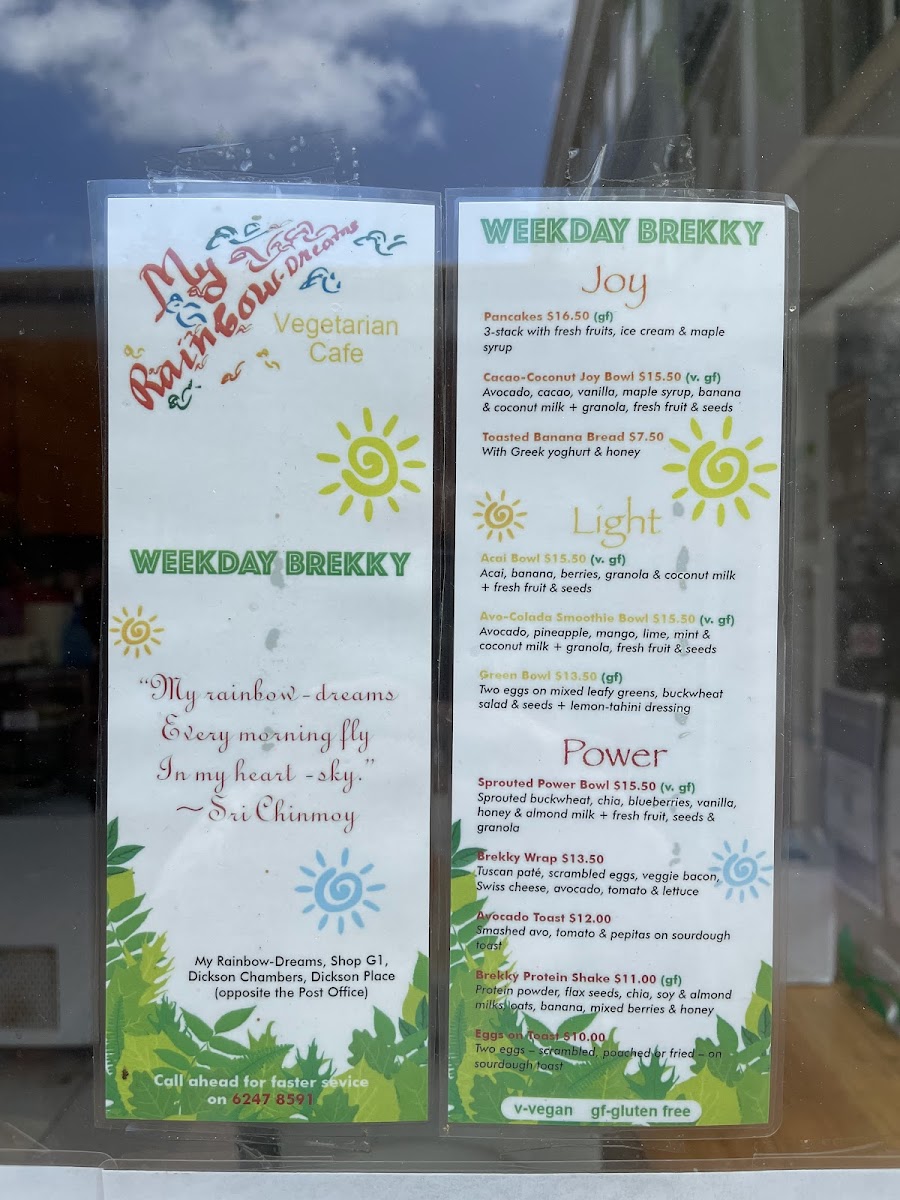 My
Rainbow-Dreams
Vegetarian
Cafe
WEEKDAY BREKKY
“My rainbow-dreams
Every morning fly
In my heart-sky.”
~Sri Chinmoy
My Rainbow-Dreams, Shop G1,
Dickson Chambers, Dickson Place
(opposite the Post Office)
Call ahead for faster sevice
on 6247 8591
WEEKDAY BREKKY
Joy
Pancakes $16.50 (gf)
3-stack with fresh fruits, ice cream & maple
syrup
Cacao-Coconut Joy Bowl $15.50 (v. gf)
Avocado, cacao, vanilla, maple syrup, banana
& coconut milk + granola, fresh fruit & seeds
Toasted Banana Bread $7.50
With Greek yoghurt & honey
Light
Acai Bowl $15.50 (v. gf)
Acai, banana, berries, granola & coconut milk
+ fresh fruit & seeds
Avo-Colada Smoothie Bowl $15.50 (v. gf)
Avocado, pineapple, mango, lime, mint &
coconut milk + granola, fresh fruit & seeds
Green Bowl $13.50 (gf)
Two eggs on mixed leafy greens, buckwheat
salad & seeds + lemon-tahini dressing
Power
Sprouted Power Bowl $15.50 (v. gf)
Sprouted buckwheat, chia, blueberries, vanilla,
honey & almond milk + fresh fruit, seeds &
granola
Brekky Wrap $13.50
Tuscan paté, scrambled eggs, veggie bacon,
Swiss cheese, avocado, tomato & lettuce
Avocado Toast $12.00
Smashed avo, tomato & pepitas on sourdough
toast
Brekky Protein Shake $11.00 (gf)
Protein powder, flax seeds, chia, soy & almond
milks, oats, banana, mixed berries & honey
Eggs on Toast $10.00
Two eggs – scrambled, poached or fried – on
sourdough toast
v-vegan gf-gluten free